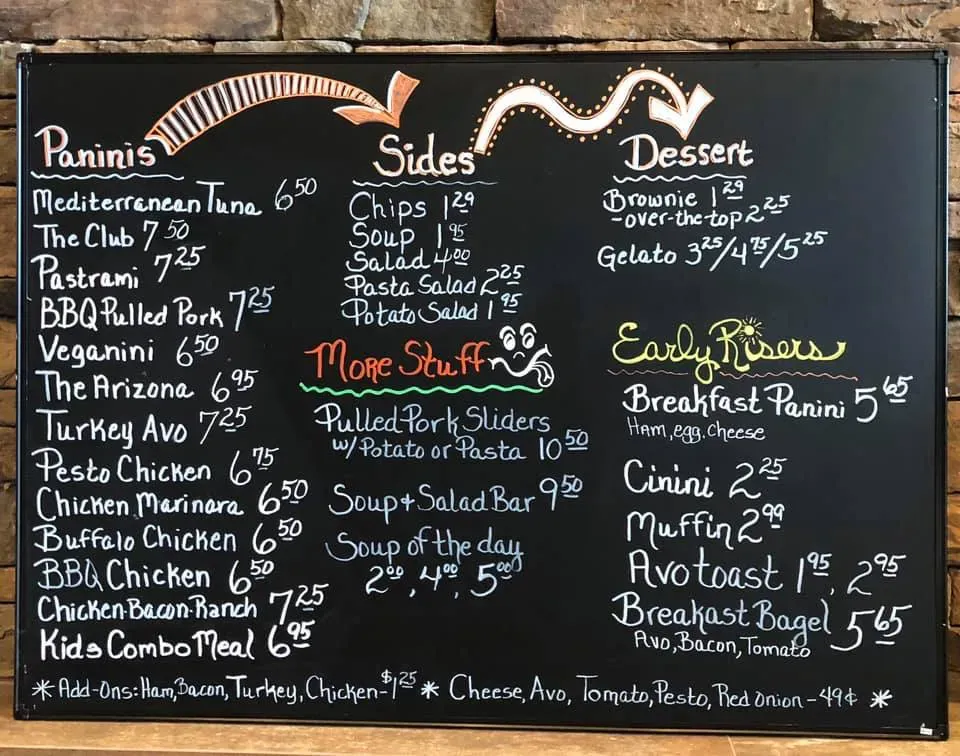 Paninis
Mediterranean Tuna 6.50
The Club 7.50
Pastrami 7.25
BBQ Pulled Pork 7.25
Veganini 6.50
The Arizona 6.95
Turkey Avo 7.25
Pesto Chicken 6.75
Chicken Marinara 6.50
Buffalo Chicken 6.50
BBQ Chicken 6.50
Chicken-Bacon-Ranch 7.25
Kids Combo Meal 6.95
Sides
Chips 1.29
Soup 1.95
Salad 4.00
Pasta Salad 2.25
Potato Salad 1.95
More Stuff
Pulled Pork Sliders
w/Potato or Pasta 10.50
Soup + Salad Bar 9.50
Soup of the day
2.00, 4.00, 5.00
Dessert
Brownie 1.29
-over-the-top 2.25
Gelato 3.25/4.75/5.25
Early Risers
Breakfast Panini 5.65
Ham, egg, cheese
Cinini 2.25
Muffin 2.99
Avotoast 1.95, 2.95
Breakast Bagel 5.65
Avo, Bacon, Tomato
* Add-Ons: Ham, Bacon, Turkey, Chicken - $1.25 * Cheese, Avo, Tomato, Pesto, Red Onion - 49¢ *